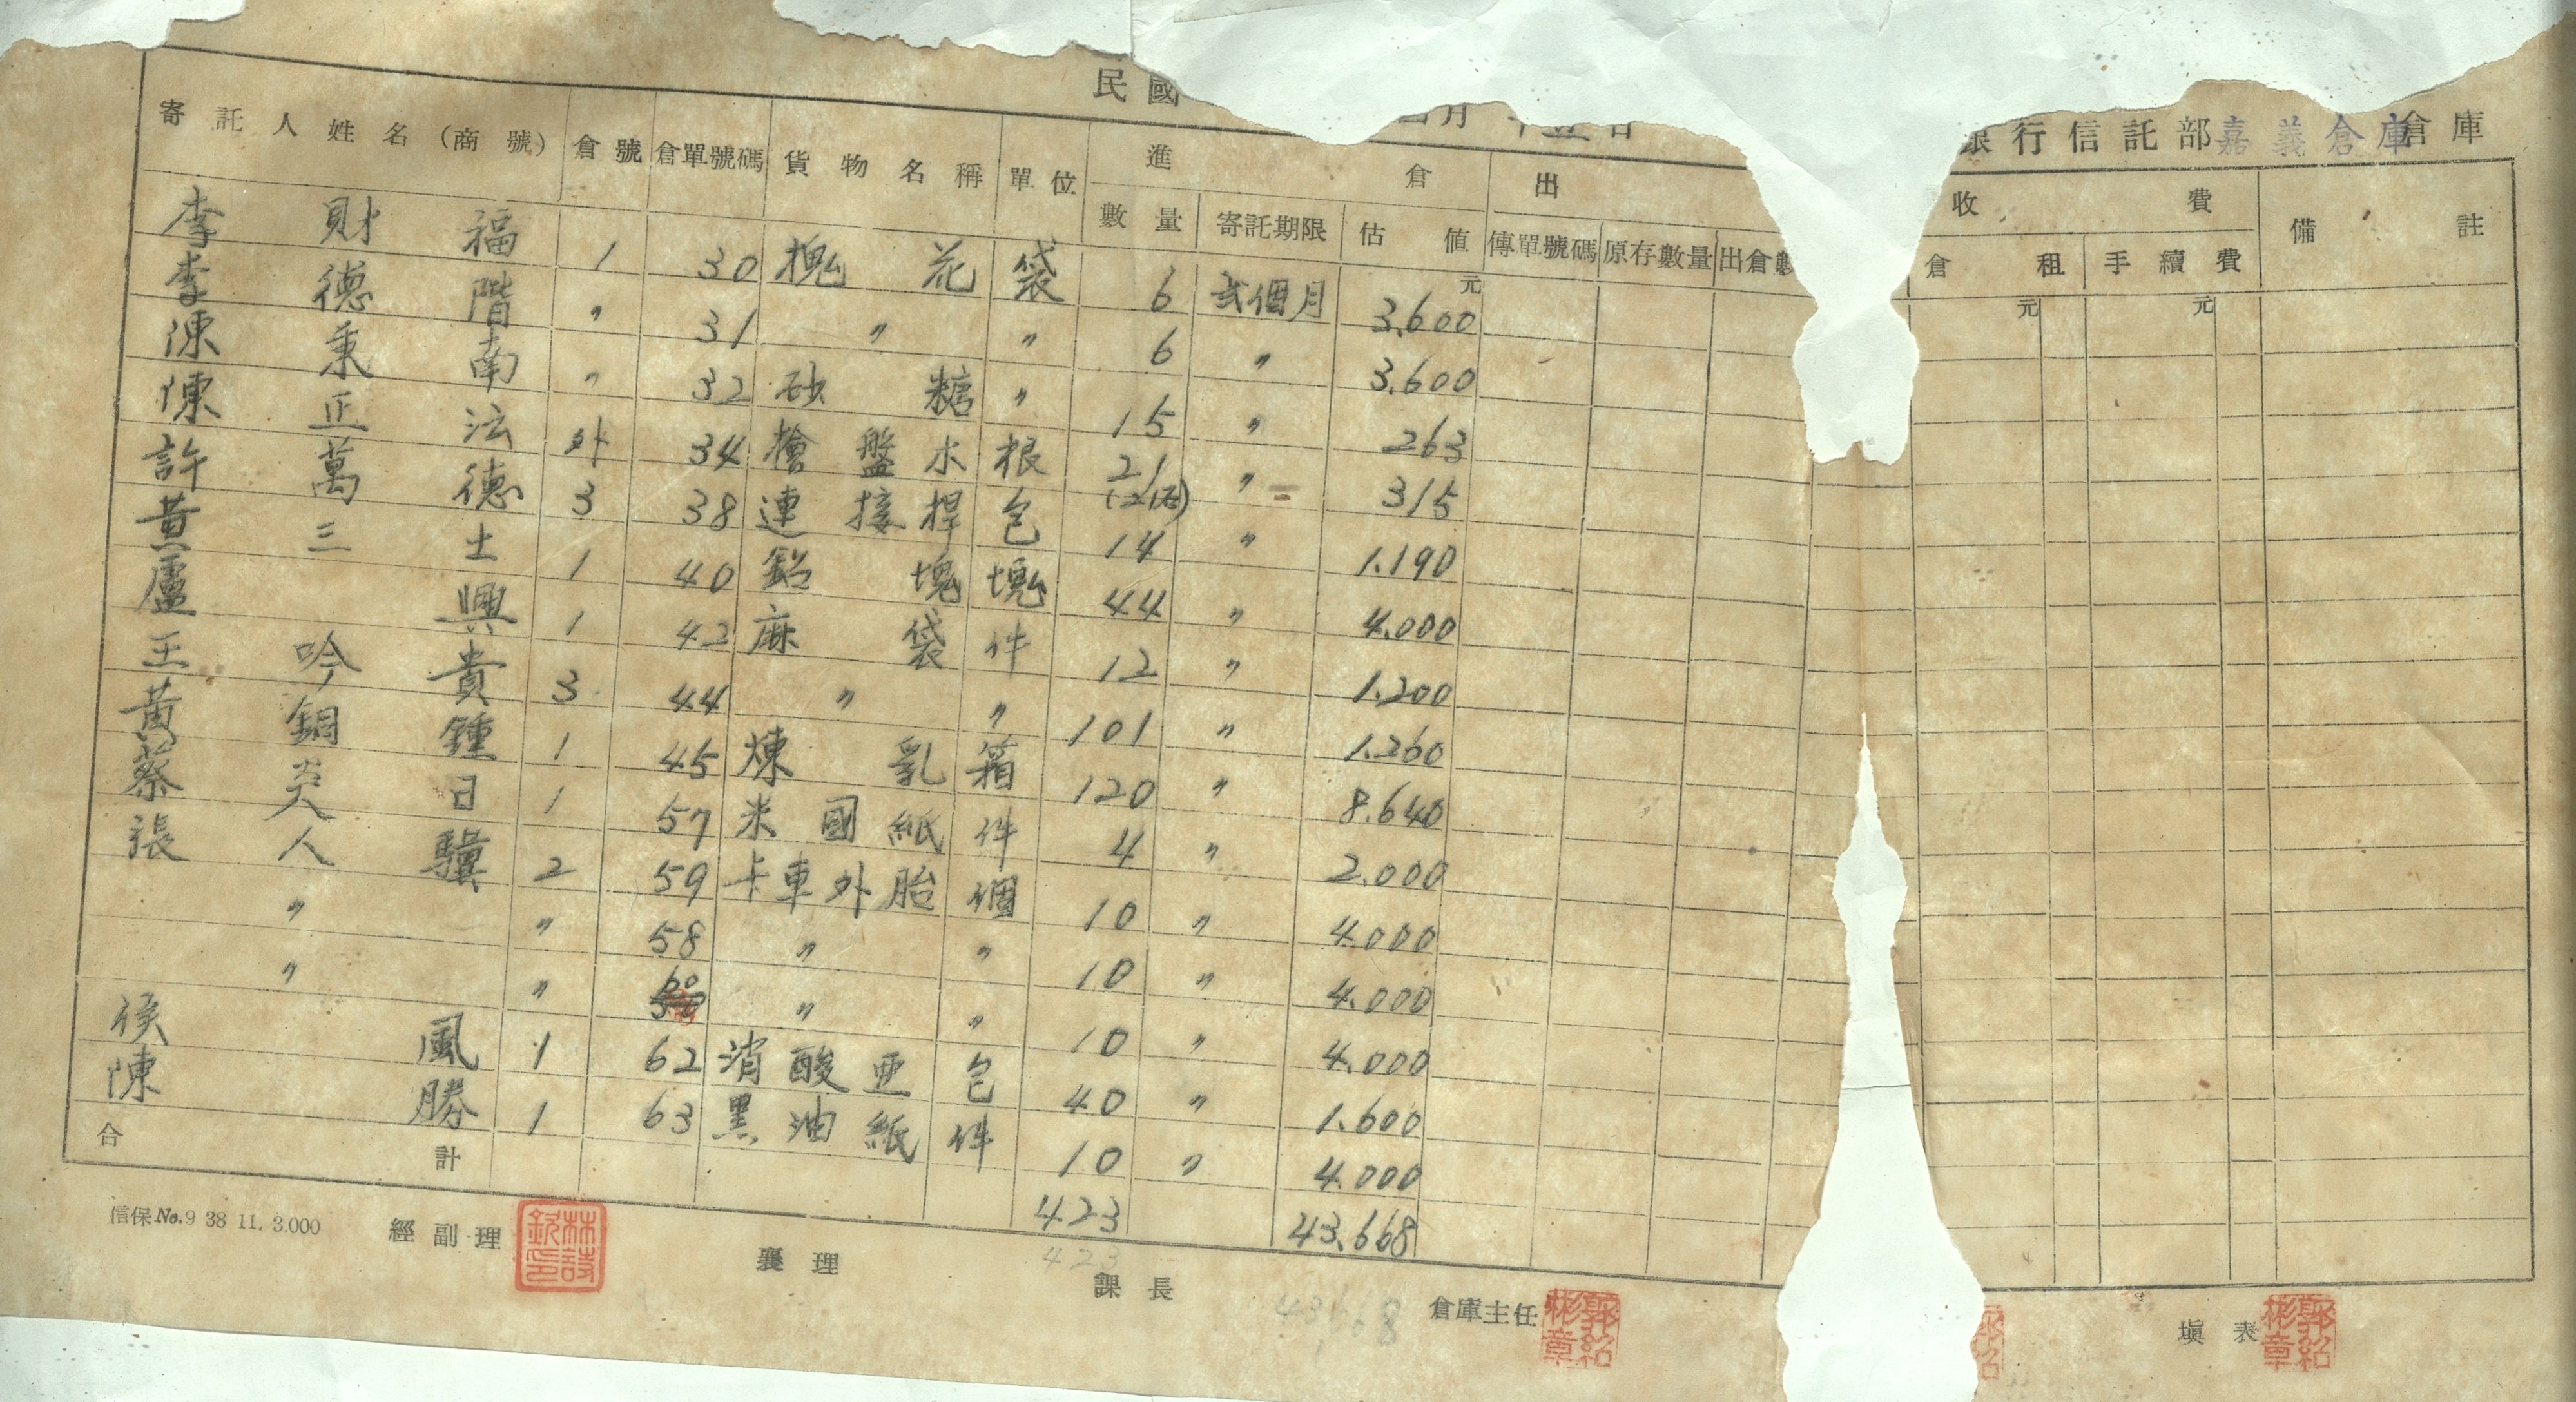 民國 月 日
銀行信託部嘉義倉庫倉庫
寄託人姓名(商號) 倉號 倉單號碼 貨物名稱 單位 進倉 出 收費 備註
數量 寄託期限 估值 傳單號碼 原存數量 出倉數 倉租 手續費
元 元 元
李財福 1 30 槐花 袋 6 弍個月 3.600
李德階 〃 31 〃 〃 6 〃 3.600
陳秉南 〃 32 砂糖 〃 15 〃 263
陳正法 外 34 檜盤木 根 21 〃 315
許萬德 3 38 連接桿 包 14 〃 1.190
黄三土 1 40 鋁塊 塊 44 〃 4.000
盧興 1 42 麻袋 件 12 〃 1.200
王吟貴 3 44 〃 〃 101 〃 1.260
黃銅鍾 1 45 煉乳 箱 120 〃 8.640
蔡炎日 1 57 米國紙 件 4 〃 2.000
張人驥 2 59 卡車外胎 個 10 〃 4.000
〃 〃 58 〃 〃 10 〃 4.000
〃 〃 60 〃 〃 10 〃 4.000
侯風 1 62 消酸亜 包 40 〃 1.600
陳勝 1 63 黑油紙 件 10 〃 4.000
合計 423 43.668
423
43668
信保No.9 38 11. 3.000 經副理 林詩欽印 襄理 課長 倉庫主任 郭紹彬章 填表 郭紹彬章